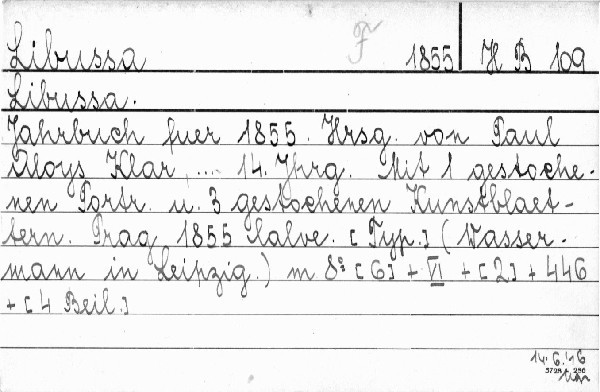 F
Libussa 1855 H B 109
Libussa.
Jahrbuch fuer 1855. Hrsg. von Paul
Aloys Klar .... 14. Jhrg. Mit 1 gestoche-
nen Portr. u. 3 gestochenen Kunstblaet-
tern. Prag 1855 Calve. [Typ.] (Wasser-
mann in Leipzig.) m 8° [6] + VI + [2] + 446
+ [4 Beil.]
14.6.16